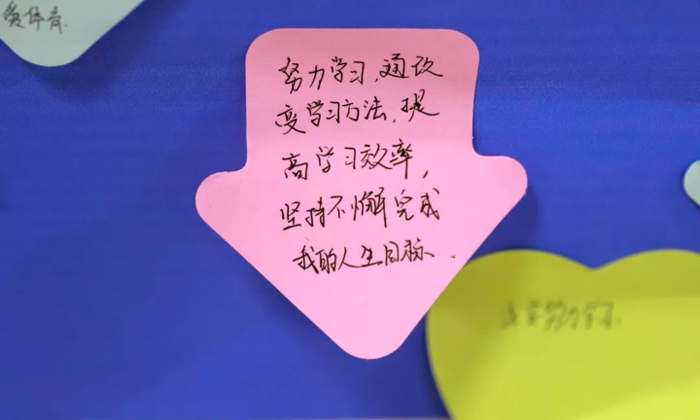 爱体育.
努力学习,通改
变学习方法,提
高学习效率,
坚持不懈完成
我的人生目标.
努力学习.